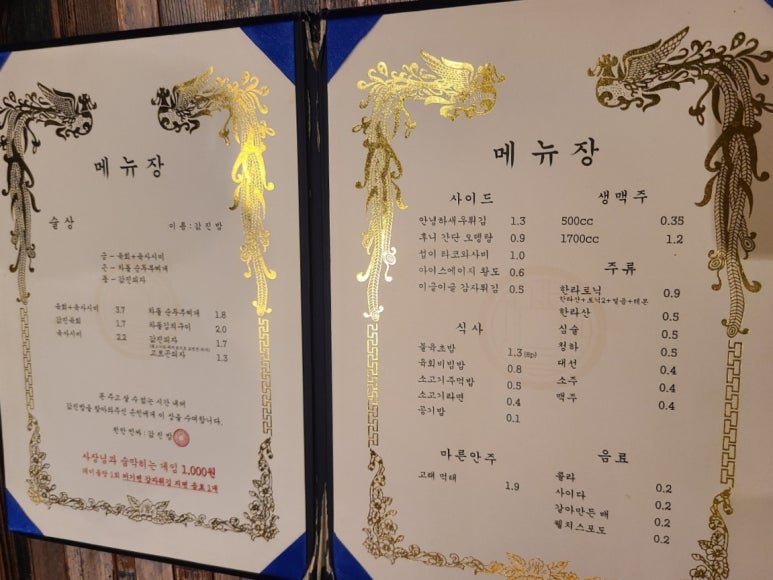 메뉴장
술상
이름 : 값진밤
금 - 육회+육사시미
은 - 차돌 순두부찌개
동 - 값진피자
육회+육사시미 3.7
값진육회 1.7
육사시미 2.2
차돌 순두부찌개 1.8
차돌김치구이 2.0
값진피자 1.7
고르곤피자 1.3
돈 주고 살 수 없는 시간 내내
값진밤을 찾아와주신 손님에게 이 상을 수여합니다.
값진밤
사장님과 하는 게임 1,000원
메뉴장
사이드
안녕하새우튀김 1.3
후니 간단 오뎅탕 0.9
섭이 타코와사비 1.0
아이스에이지 황도 0.6
이글이글 감자튀김 0.5
식사
불육초밥 1.3(8p)
육회비빔밥 0.8
소고기주먹밥 0.5
소고기라면 0.4
공기밥 0.1
마른안주
고래 먹태 1.9
생맥주
500cc 0.35
1700cc 1.2
주류
한라토닉 0.9
한라산+토닉2+얼음+레몬
한라산 0.5
심술 0.5
청하 0.5
대선 0.4
소주 0.4
맥주 0.4
음료
콜라 0.2
사이다 0.2
갈아만든 배 0.2
웰치스포도 0.2